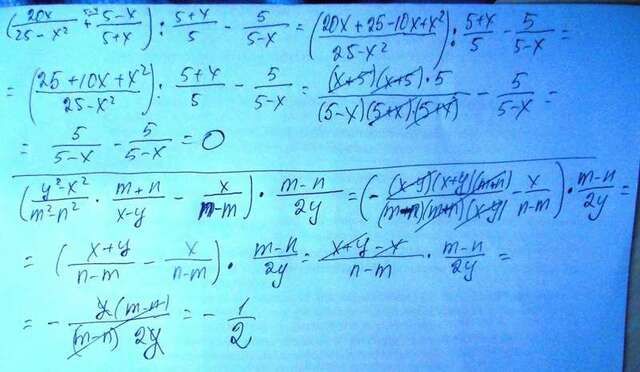 (20x/(25-x²) + ^(5-x) (5-x)/(5+x)) : (5+x)/5 - 5/(5-x) = ((20x+25-10x+x²)/(25-x²)) : (5+x)/5 - 5/(5-x) =
= ((25+10x+x²)/(25-x²)) : (5+x)/5 - 5/(5-x) = ((x+5)(x+5)·5)/((5-x)(5+x)·(5+x)) - 5/(5-x) =
= 5/(5-x) - 5/(5-x) = 0
((y²-x²)/(m²-n²) · (m+n)/(x-y) - x/(n-m)) · (m-n)/2y = (- ((x-y)(x+y)(m+n))/((m-n)(m+n)(x-y)) - x/(n-m)) · (m-n)/2y =
= ((x+y)/(n-m) - x/(n-m)) · (m-n)/2y = (x+y-x)/(n-m) · (m-n)/2y =
= - (y·(m-n))/((m-n) 2y) = - 1/2